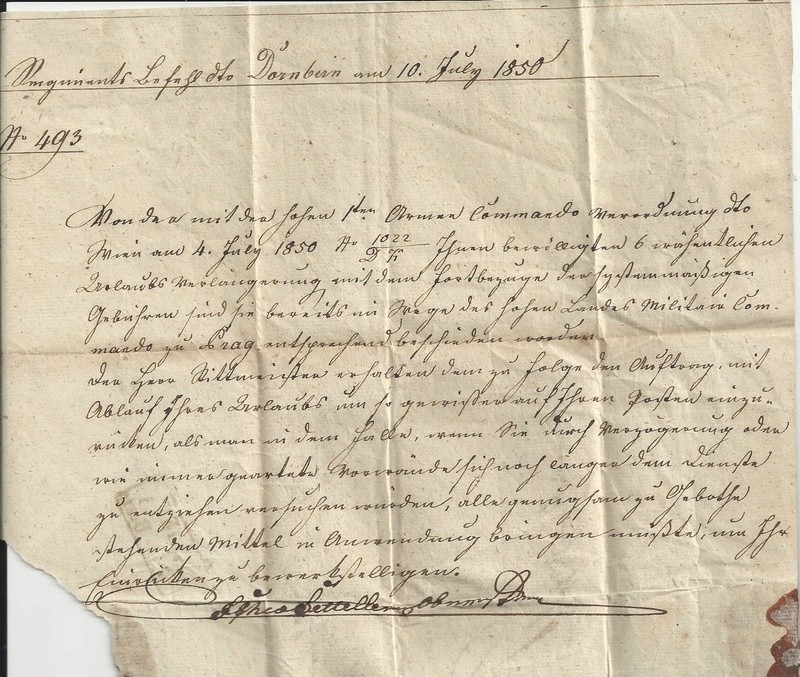 Regiments Befehl dto Dornbirn am 10. July 1850
No 493
Von der mit der hohen 1ten Armee Commando Verordnung dto
Wien am 4. July 1850 No 1022 Ihnen bewilligten 6 wöhentlichen
Urlaubs Verlängerung mit dem Fortbezuge der systemmäßigen
Gebühren sind sie bereits im Wege des hohen Landes Militair Com-
mando zu Prag entsprechend beschieden worden
Der Herr Rittmeister erhalten dem zu Folge den Auftrag, mit
Ablauf Ihres Urlaubs um so gewisser auf Ihren Posten einzu-
rücken, als man in dem Falle, wenn Sie durch Verzögerung oder
wie immer geartete Vorwände sich noch länger dem Dienste
zu entziehen versuchen würden, alle genugsam zu Gebothe
stehenden Mittel in Anwendung bringen müßte, um Ihr
Einrücken zu bewerkstelligen.